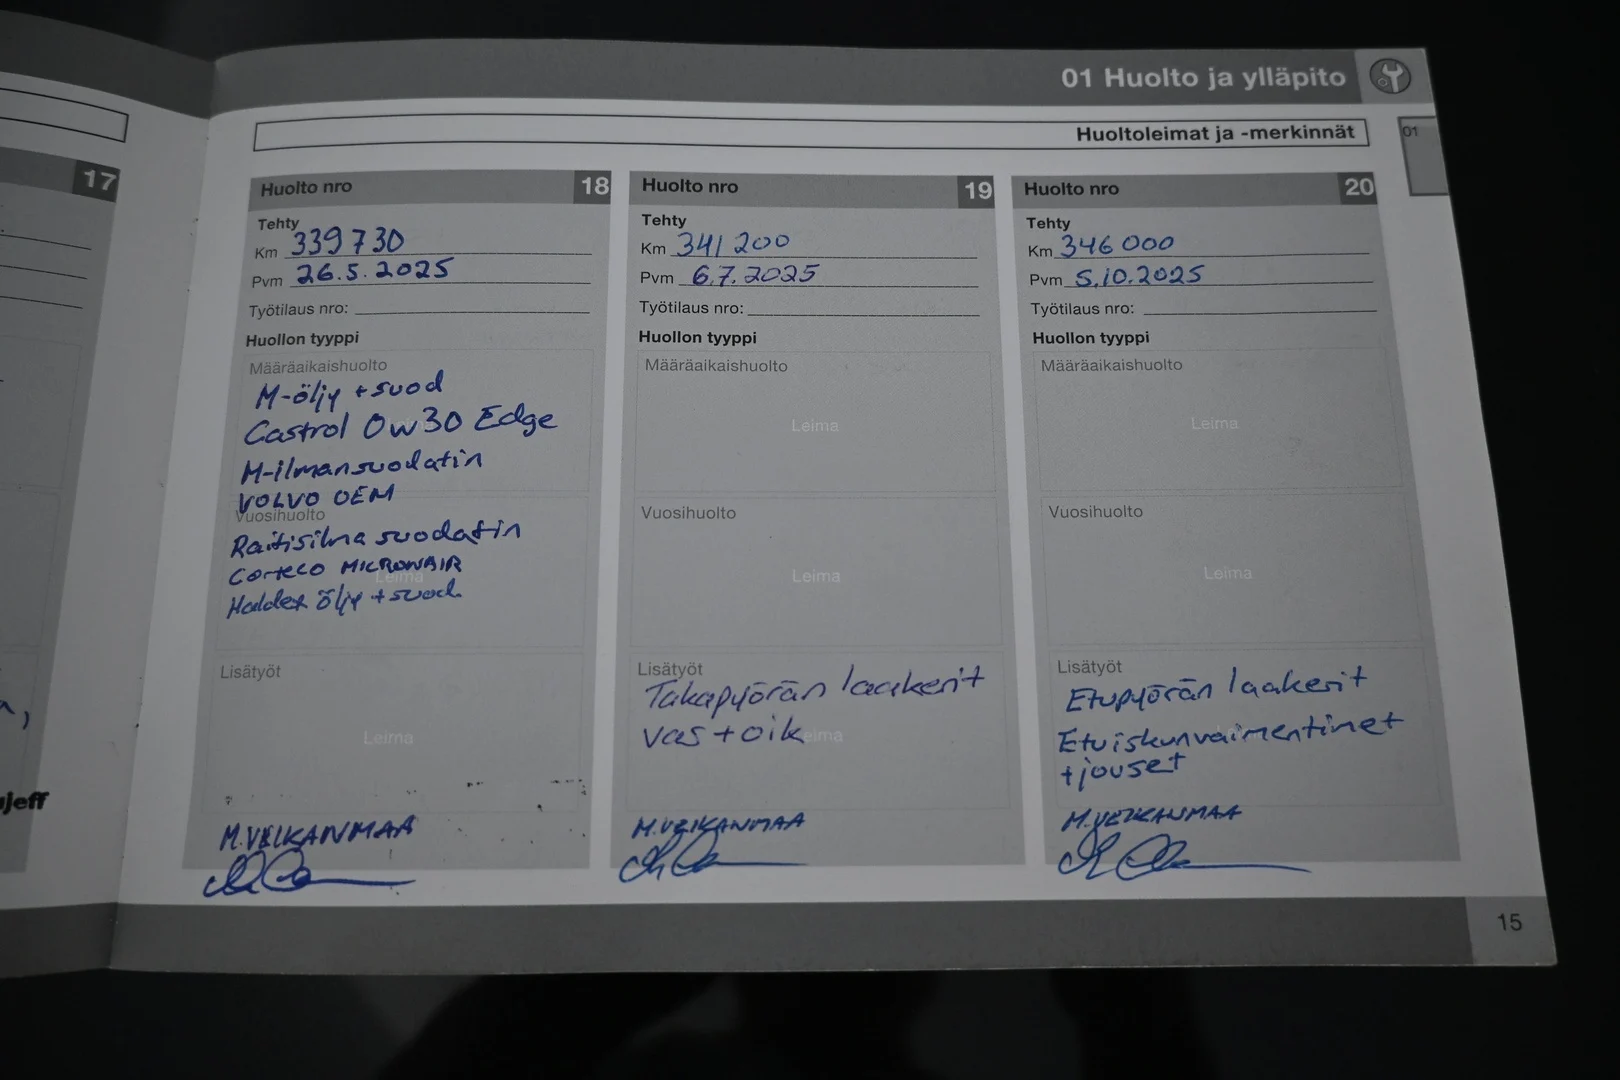 01 Huolto ja ylläpito
Huoltoleimat ja -merkinnät
01
17
ujeff
Huolto nro 18
Tehty
Km 339730
Pvm 26.5.2025
Työtilaus nro:
Huollon tyyppi
Määräaikaishuolto
M-öljy + suod
Castrol 0w30 Edge
Leima
M-ilmansuodatin
VOLVO OEM
Vuosihuolto
Raitisilma suodatin
Corteco MICRONAIR
Leima
Haldex öljy + suod.
Lisätyöt
Leima
M.VEIKANMAA
Huolto nro 19
Tehty
Km 341 200
Pvm 6.7.2025
Työtilaus nro:
Huollon tyyppi
Määräaikaishuolto
Leima
Vuosihuolto
Leima
Lisätyöt
Takapyörän laakerit
vas + oik
Leima
M.VEIKANMAA
Huolto nro 20
Tehty
Km 346 000
Pvm 5.10.2025
Työtilaus nro:
Huollon tyyppi
Määräaikaishuolto
Leima
Vuosihuolto
Leima
Lisätyöt
Etupyörän laakerit
Etuiskunvaimentimet
+ jouset
M.VEIKANMAA
15